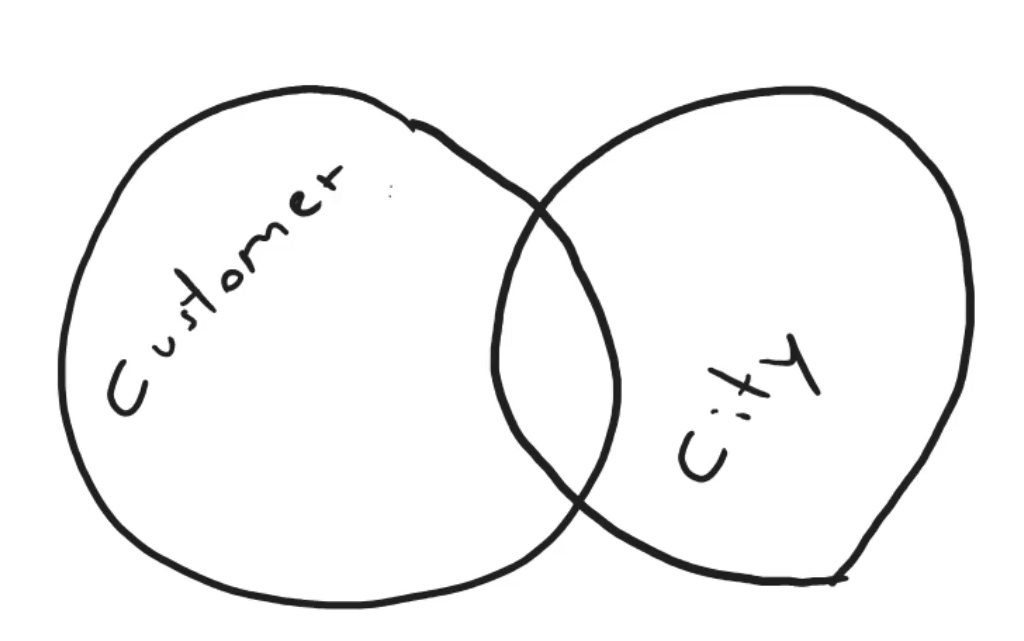 Customer
City